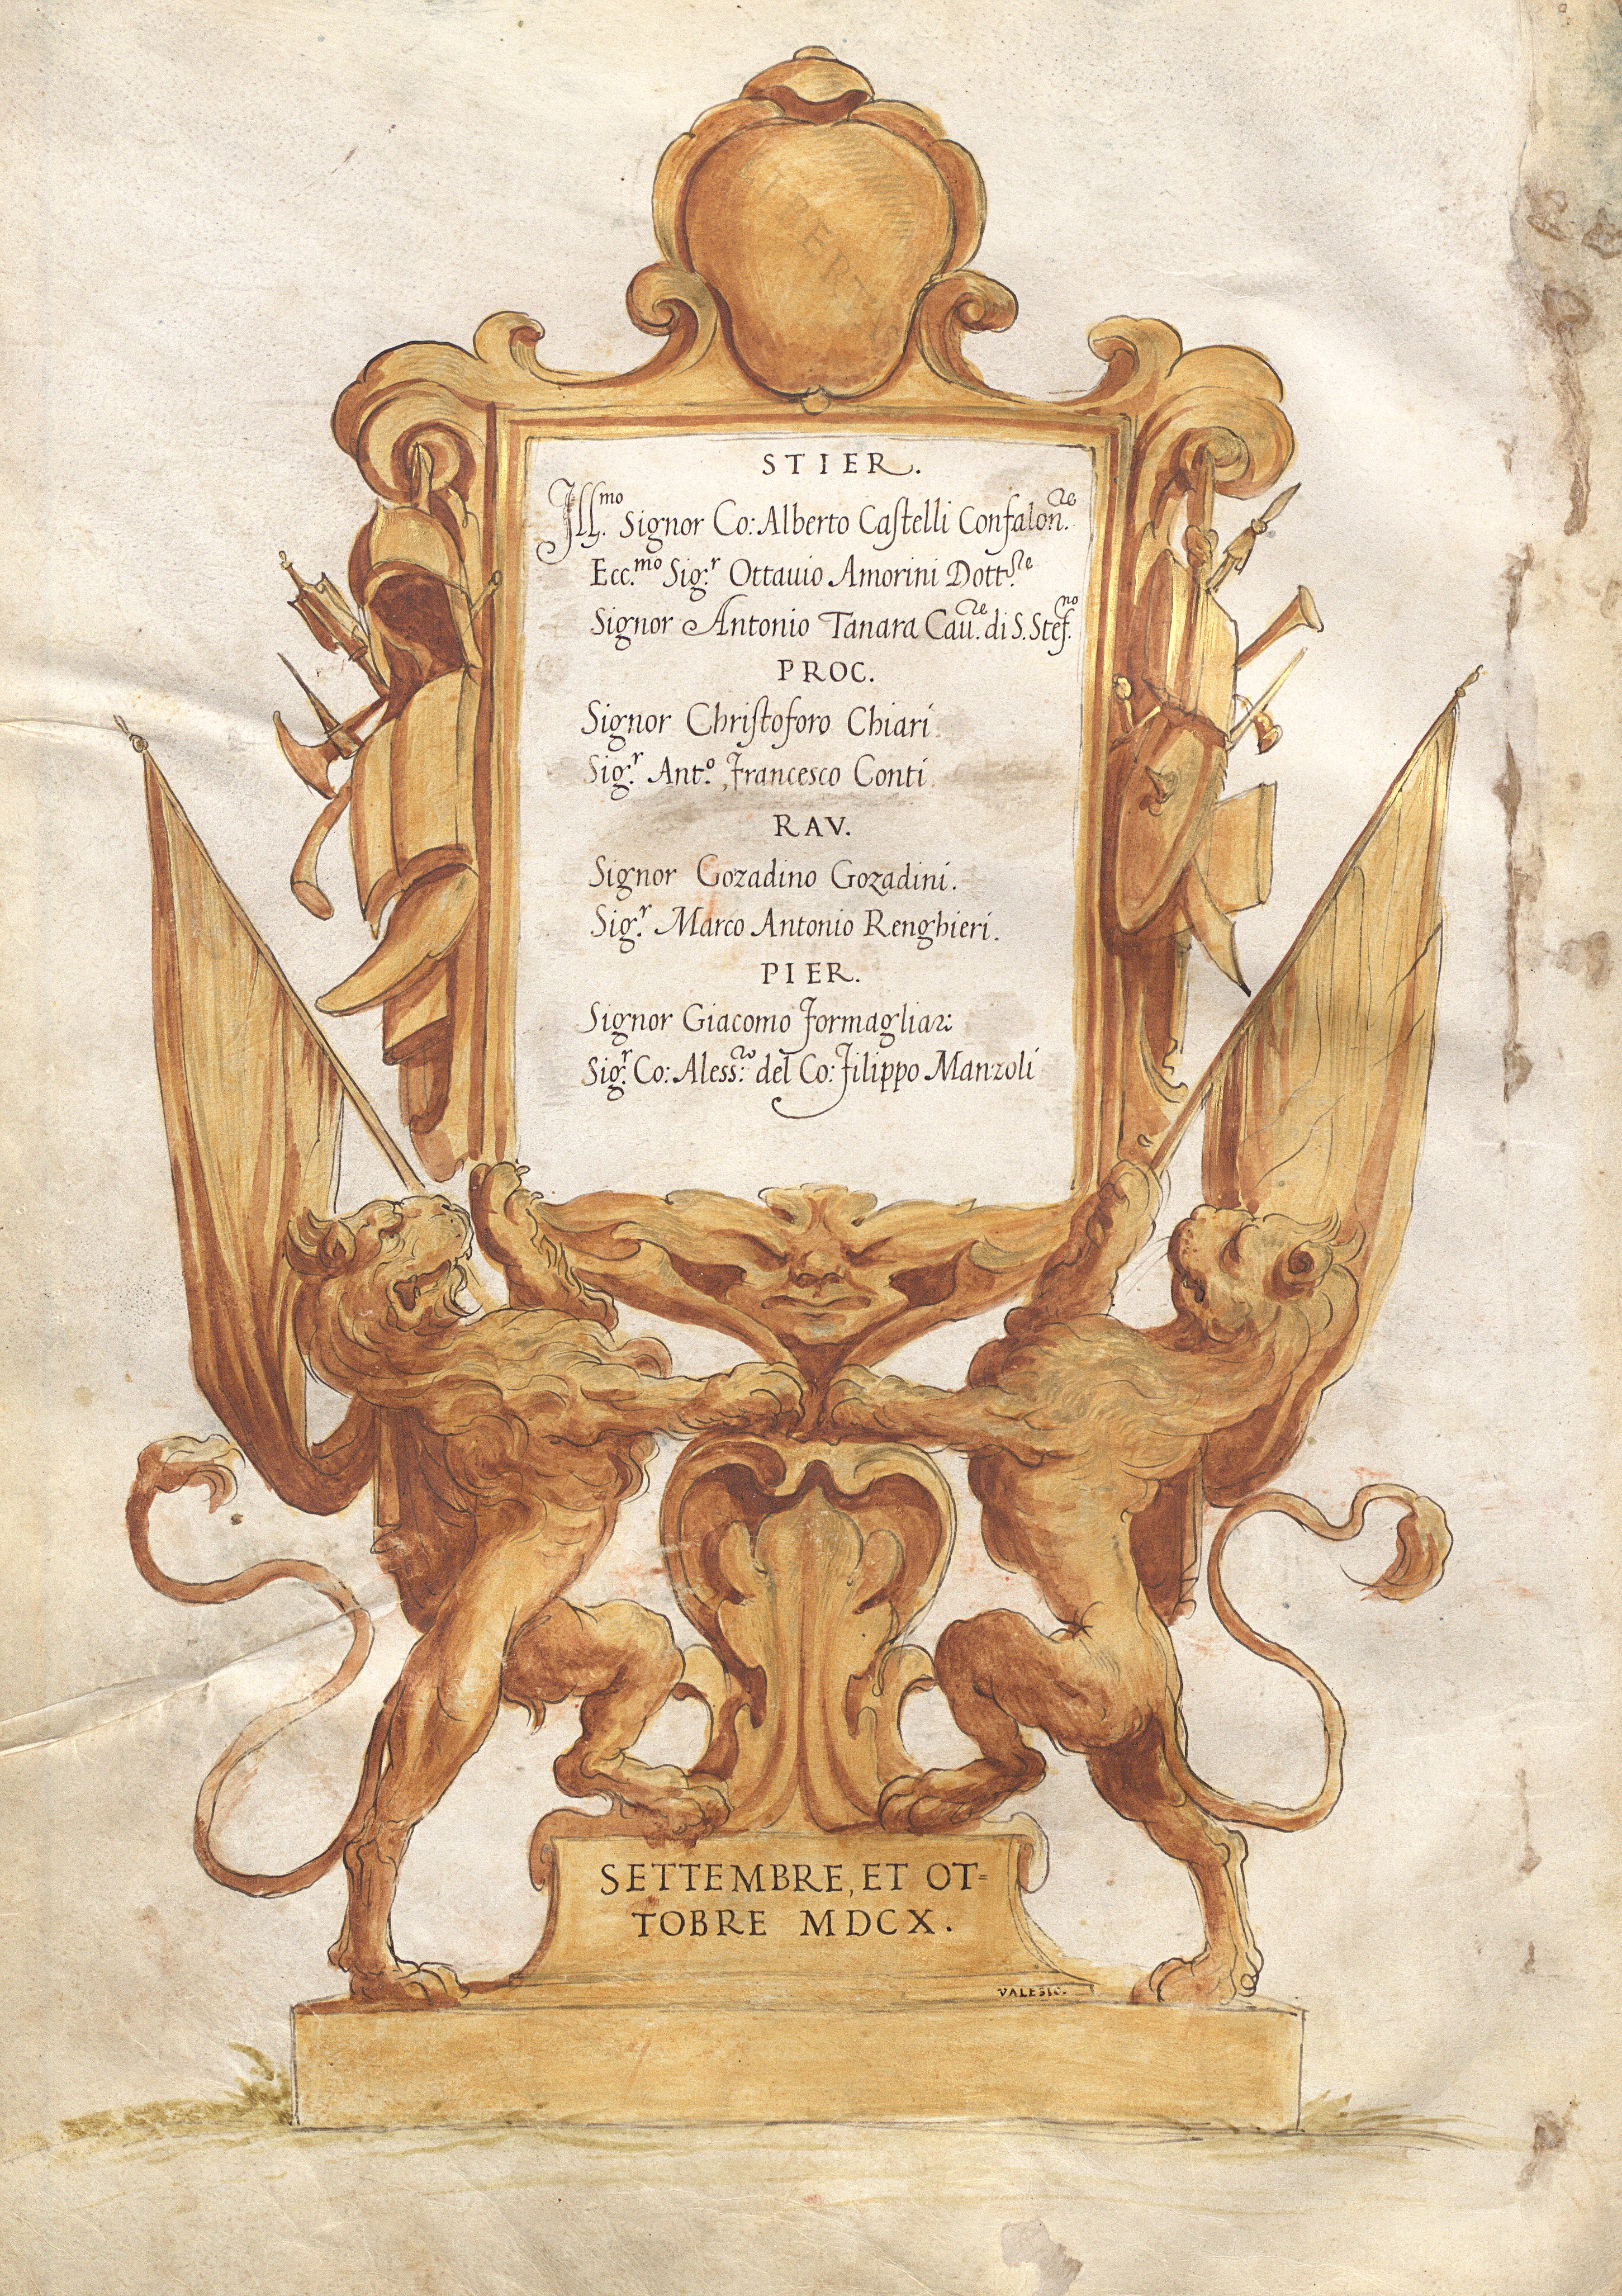 LIBERTAS
STIER.
Ill.mo Signor Co: Alberto Castelli Confalon.re
Ecc.mo Sig.r Ottauio Amorini Dott.re
Signor Antonio Tanara Cau.re di S. Stef.no
PROC.
Signor Christoforo Chiari
Sig.r Ant.o Francesco Conti.
RAV.
Signor Gozadino Gozadini.
Sig.r Marco Antonio Renghieri.
PIER.
Signor Giacomo Formagliari
Sig.r Co: Aless:ro del Co: Filippo Manzoli
SETTEMBRE, ET OT=
TOBRE MDCX.
VALESIO.